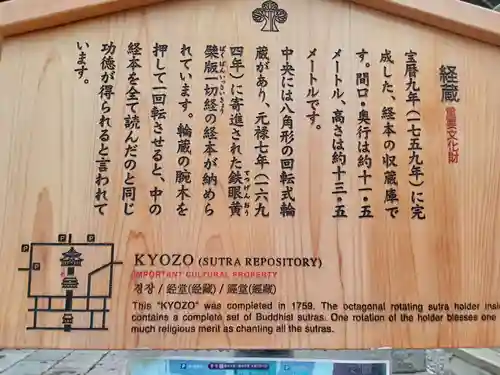 経蔵 重要文化財
宝暦九年(一七五九年)に完
成した、経本の収蔵庫で
す。間口・奥行は約十一・五
メートル、高さは約十三・五
メートルです。
中央には八角形の回転式輪
蔵があり、元禄七年(一六九
四年)に寄進された鉄眼黄
てつげんおう
檗版一切経の経本が納めら
ばくばんいっさいきょう
れています。輪蔵の腕木を
押して一回転させると、中の
経本を全て読んだのと同じ
功徳が得られると言われて
います。
KYOZO (SUTRA REPOSITORY)
IMPORTANT CULTURAL PROPERTY
경장 / 经堂(经藏) / 經堂(經藏)
This "KYOZO" was completed in 1759. The octagonal rotating sutra holder
contains a complete set of Buddhist sutras. One rotation of the holder blesses one
much religious merit as chanting all the sutras.
P
P
P